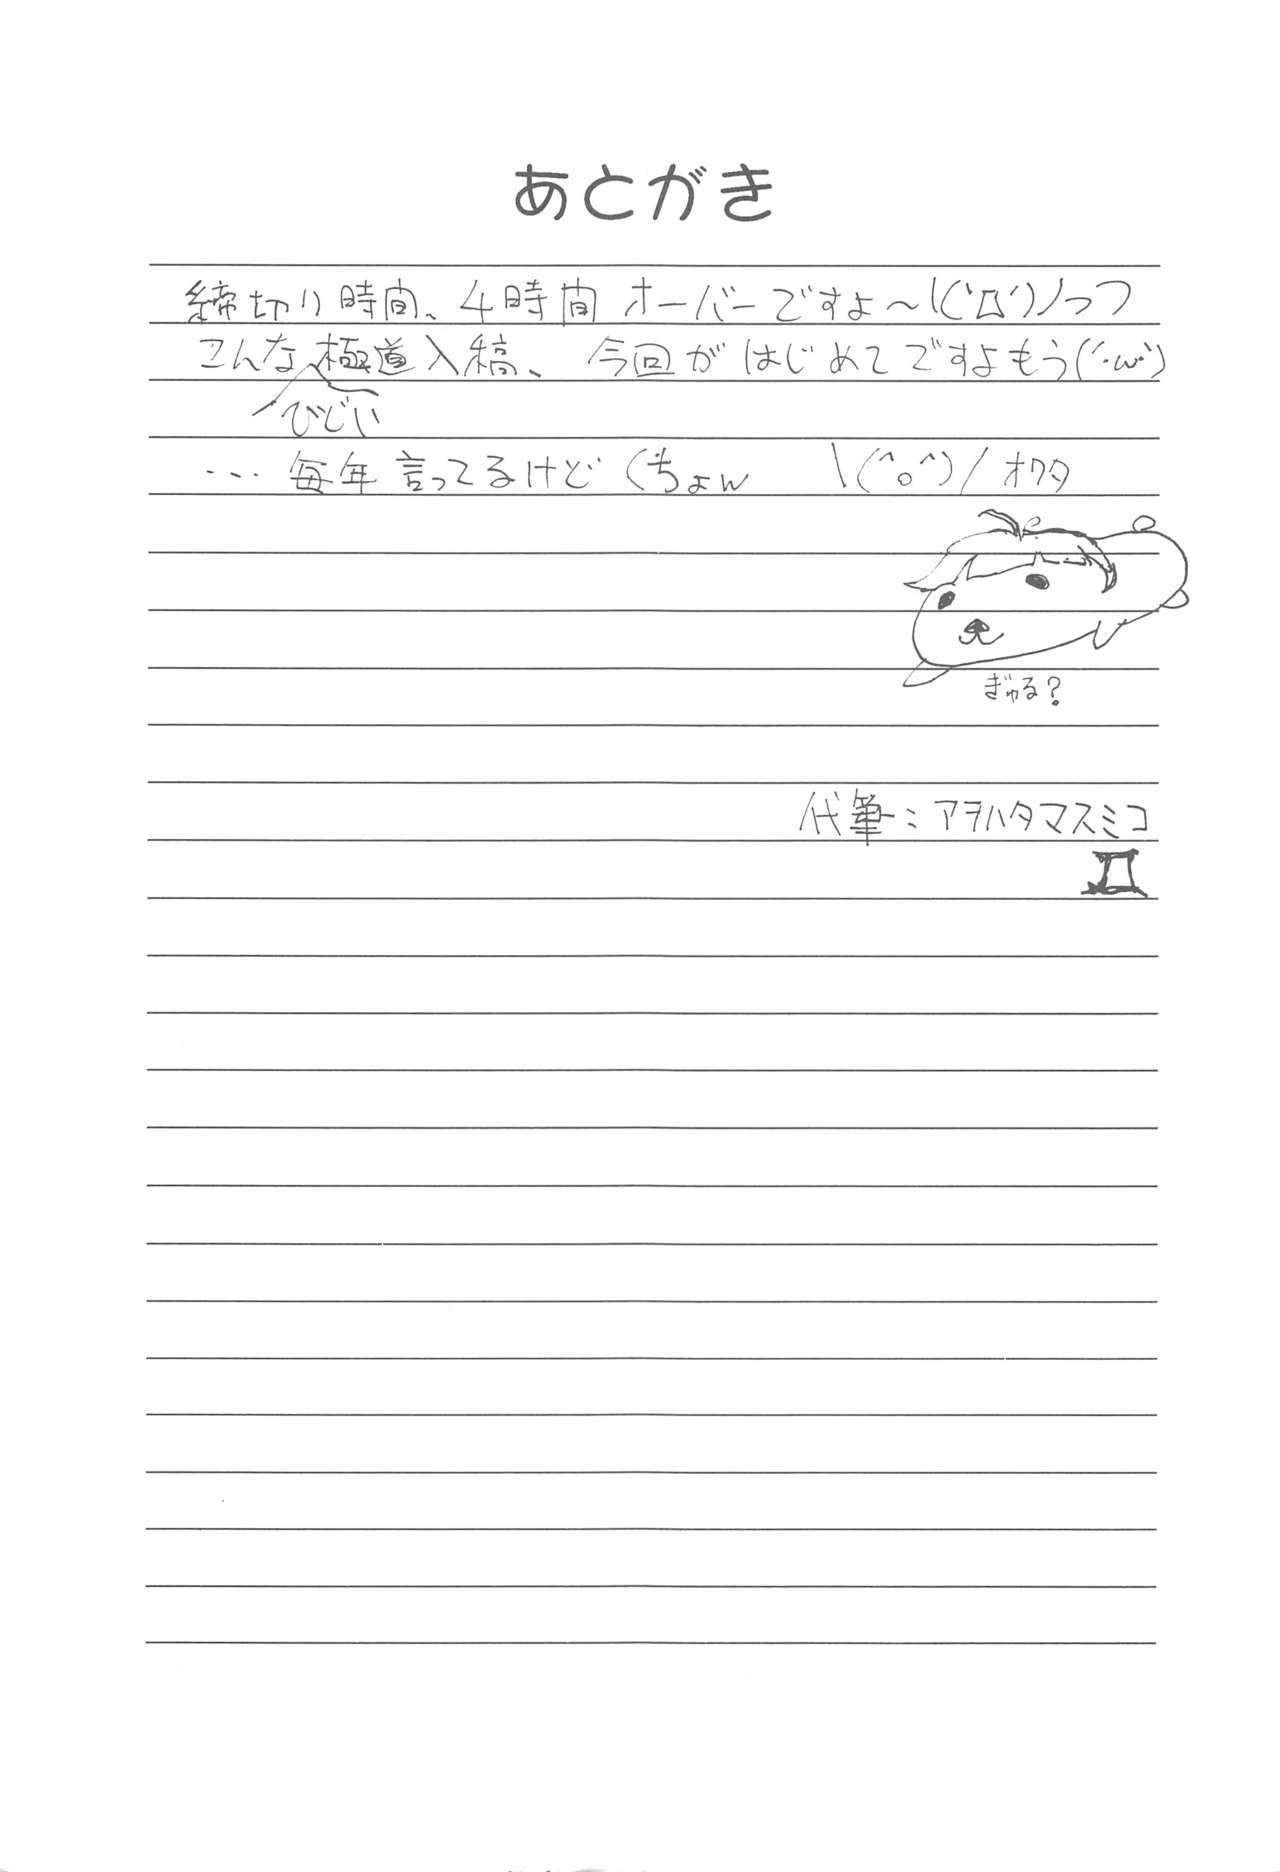 あとがき
締切り時間、4時間オーバーですよ～\('Д')/つつ
こんな極道入稿、今回がはじめてですよもう(´･ω･`)
ひどい
… 毎年言ってるけど くちょw \(^o^)/ オワタ
ぎゅる?
代筆:アヲハタマスミコ